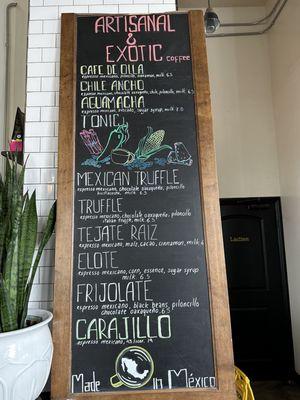 ARTISANAL
&
EXOTIC coffee
CAFE DE OLLA
espresso mexicano, piloncillo, cinnamon, milk 6.5
CHILE ANCHO
espresso mexicano, chocolate oaxaqueño, chile, piloncillo, milk 6.5
AGUAMACHA
espresso mexicano, sugar syrup, milk
TONIC
MEXICAN TRUFFLE
espresso mexicano, chocolate oaxaqueño, piloncillo
milk 6.5
TRUFFLE
espresso mexicano, chocolate oaxaqueño, piloncillo
italian truffle, milk 6.5
TEJATE RAIZ
espresso mexicano, maiz, cacao, cinnamon, milk 6
ELOTE
espresso mexicano, corn, essence, sugar syrup
milk 6.5
FRIJOLATE
espresso mexicano, black beans, piloncillo
chocolate oaxaqueño 6.5
CARAJILLO
espresso mexicano, 43 licor. 14
Made in México